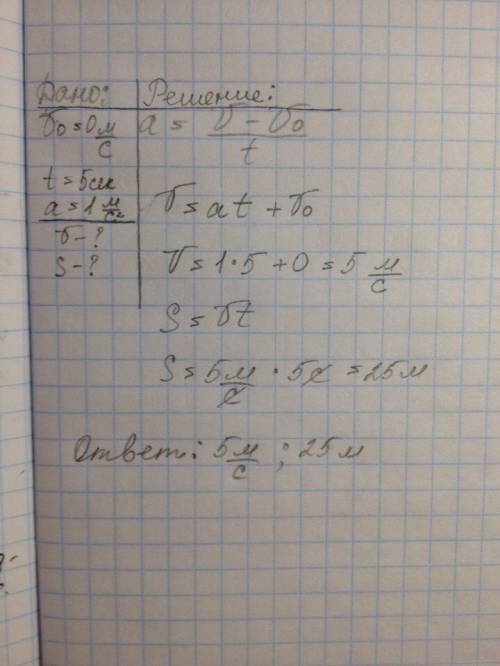 Дано:
v₀ = 0 м/с
t = 5 сек
a = 1 м/с²
v - ?
S - ?
Решение:
a = (v - v₀)/t
v = at + v₀
v = 1·5 + 0 = 5 м/с
S = vt
S = 5 м/с · 5 с = 25 м
Ответ: 5 м/с ; 25 м